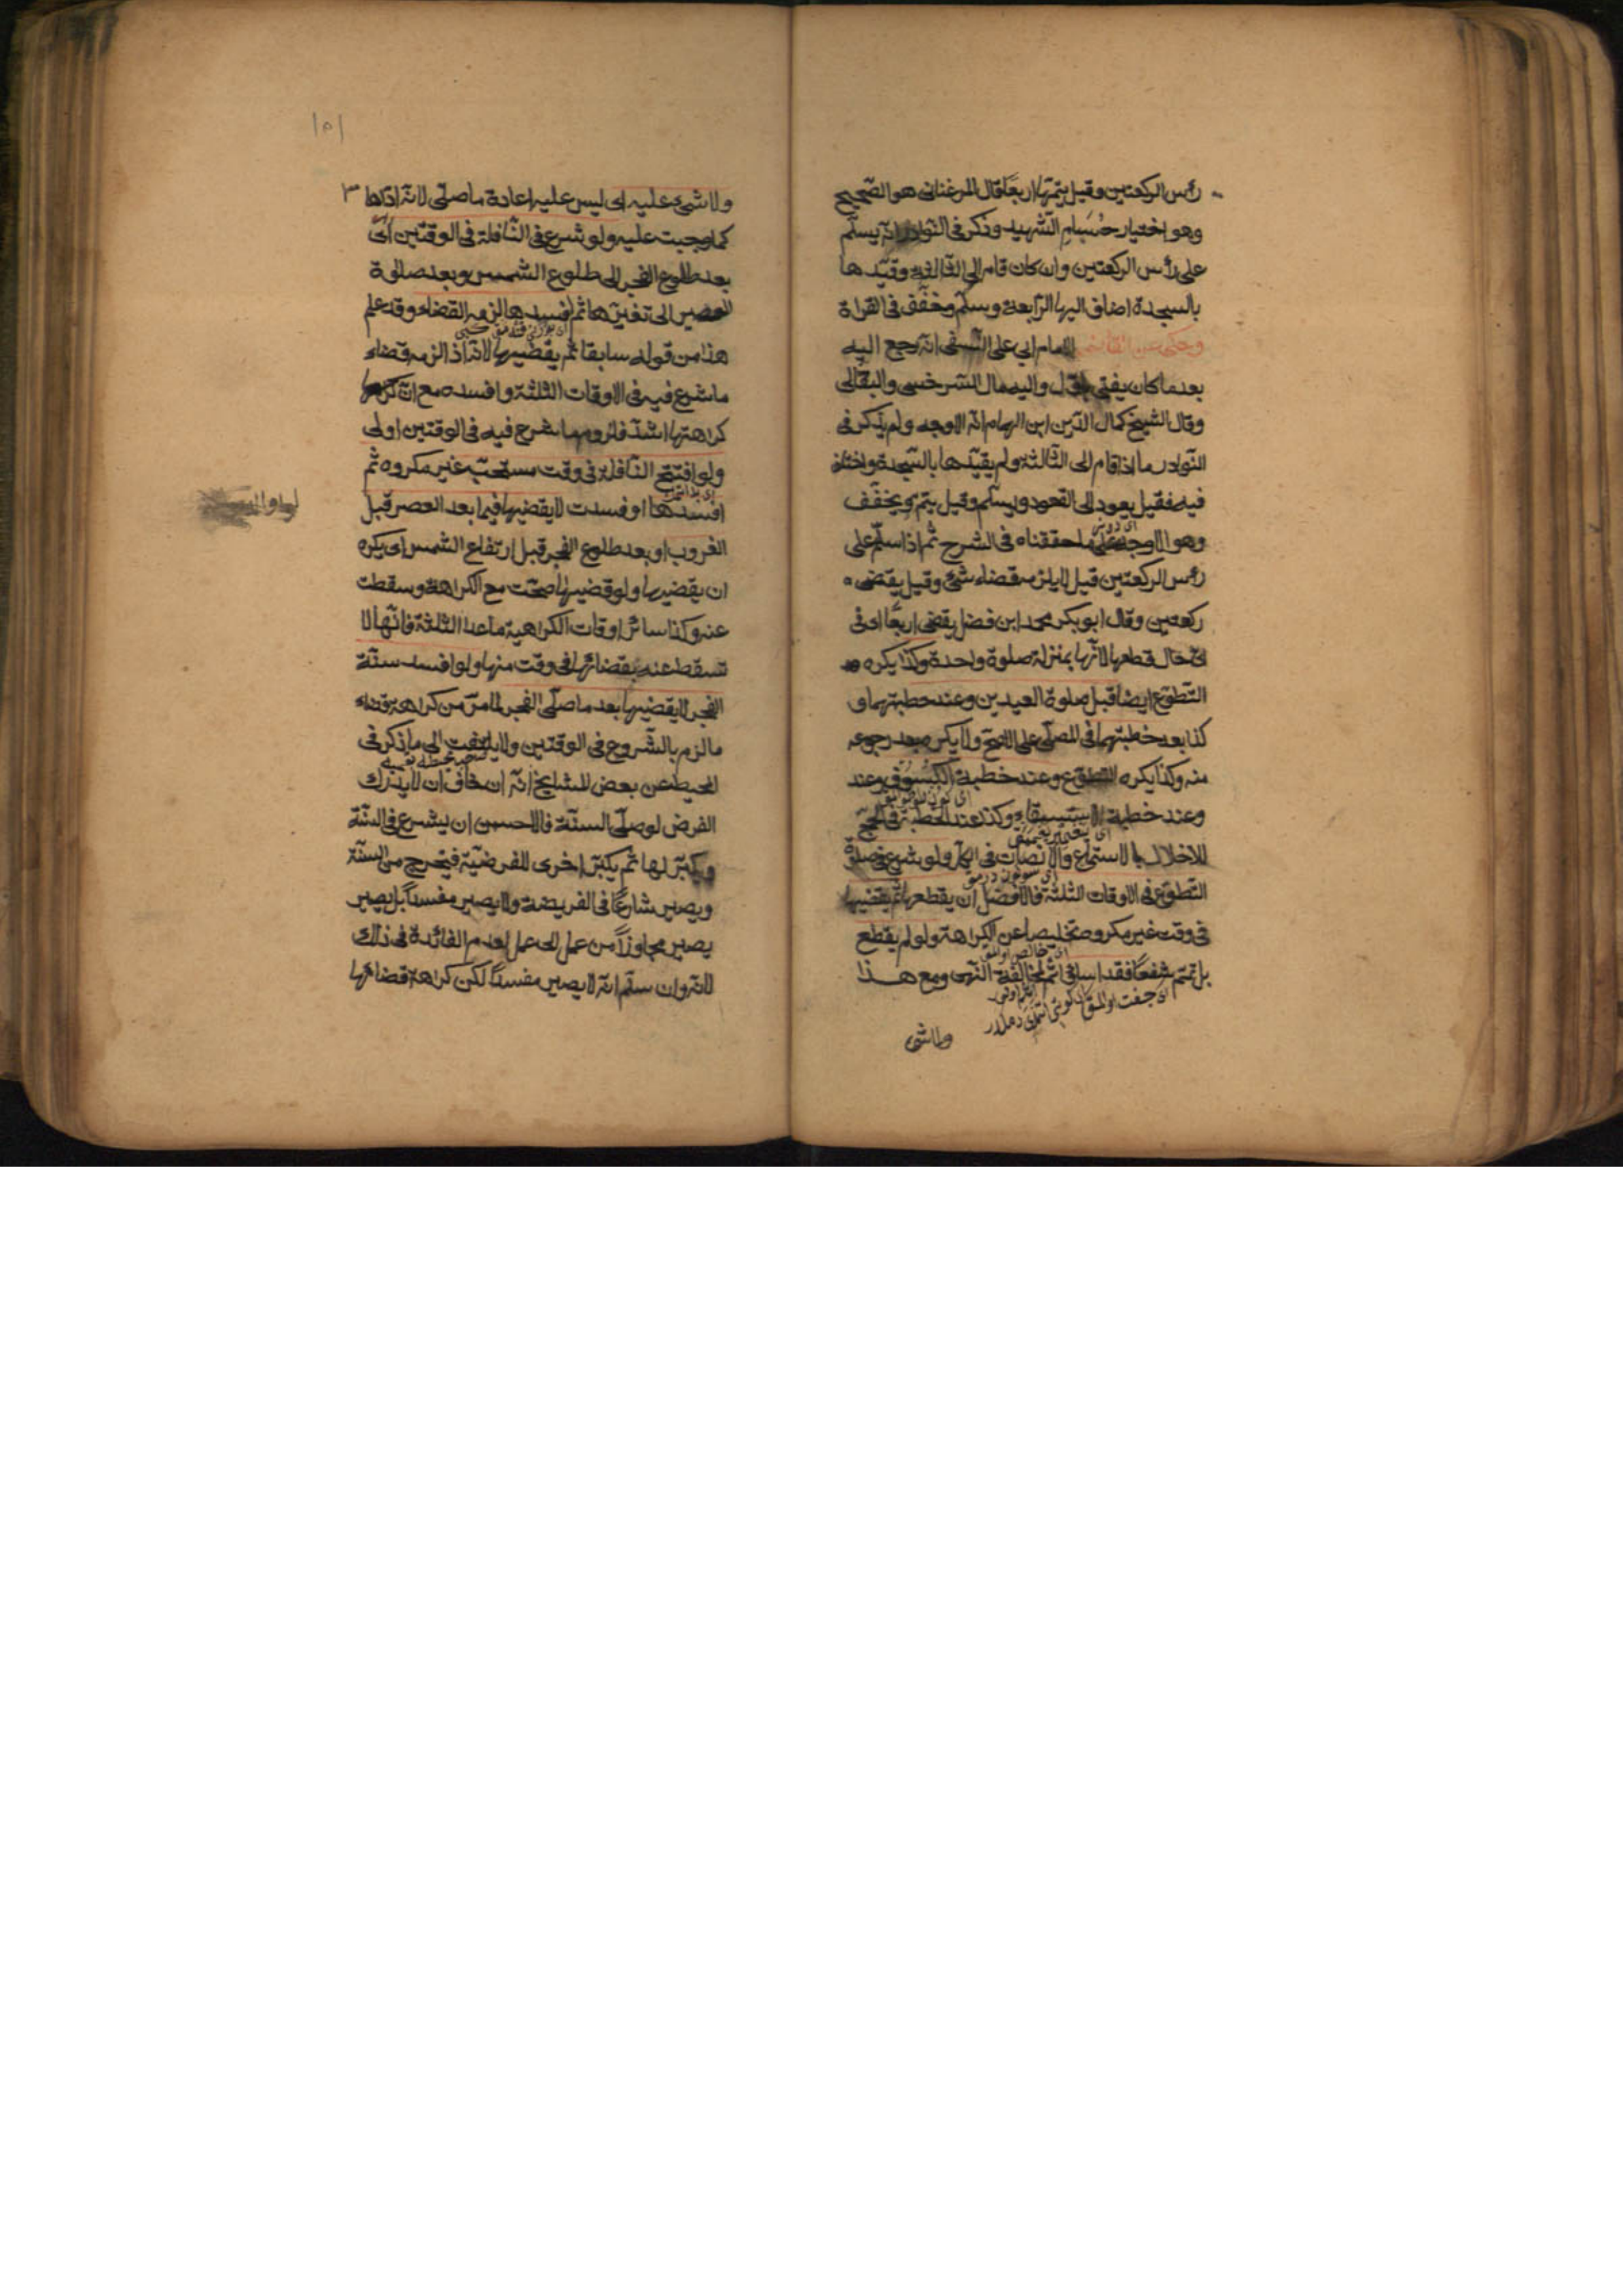 رأس الركعتين وقيل يتمّها اربعًا قال المرغنانى هو الصّحيح
وهو اختيار حُسَامِ الشّهيد وذكر فى النّوادر انه يسلّم
على رأس الركعتين وان كان قام الى الثالثة وقيّدها
بالسجدة اضاف اليها الرّابعة وسلّم وخفّف فى القراة
وحكى عن القاضى الامام ابى على النّسفى انّه رجع اليه
بعد ما كان يفتى والیه مال السّرخسى والبقالى
وقال الشيخ كمال الدّين ابن الهمام انّه الاوجه ولم يذكر فى
النّوادر ما اذا قام الى الثّالثة ولم يقيّدها بالسّجدة واختلف
فيه فقيل يعود الى القعود ويسلّم وقيل يتمّ ويخفّف
وهو الاوجه على ما حققناه فى الشّرح ثمّ اذا سلّم على
رأس الركعتين قيل لا يلزمه قضاء شئ وقيل يقضى
ركعتين وقال ابو بكر محمد ابن فضل يقضى اربعًا اى فى
اىّ حال قطعها لانّها بمنزلة صلوة واحدة وكذا يكره
التّطوّع ايضا قبل صلوة العيدين وعند خطبتهما و
كذا بعد خطبتهما فى المصلّى على الاصحّ ولا يكره بعد رجوعه
منه وكذا يكره التطوّع وعند خطبة الكُسُوف وعند
وعند خطبة الاستسقاء وكذا عند الخطبة فى الحجّ
للاخلال بالاستماع والانصات فى الكلّ ولو شرع فى صلوة
التّطوّع فى الاوقات الثلثة فالافضل ان يقطعها ثمّ يقضيها
فى وقت غير مكروه تخليصا عن الكراهة ولو لم يقطع
بل تمّم شفعًا فقد اساء فى اثم لمخالفة النّهى ومع هذا
ولا شئ
١٥١
ولا شئ عليه اى ليس عليه اعادة ما صلّى لانه ادّاها
كما وجبت عليه ولو شرع فى النّافلة فى الوقتين اى
بعد طلوع الفجر الى طلوع الشّمس وبعد صلوة
العصر الى تغيّرها ثمّ افسدها لزمه القضاء وقد علم
هذا من قوله سابقا ثمّ يقضيها لانّه اذا لزمه قضاء
ما شرع فيه فى الاوقات الثلثة وافسده مع انّ
كراهتها اشدّ فلزوم ما شرع فيه فى الوقتين اولى
ولو افتتح النّافلة فى وقت مستحبّ غير مكروه ثمّ
افسدها او فسدت لا يقضيها فيما بعد العصر قبل
الغروب او بعد طلوع الفجر قبل ارتفاع الشّمس اى يكره
ان يقضيها ولو قضيها صحّت مع الكراهة وسقطت
عنه وكذا سائر اوقات الكراهية ما عدا الثلثة فانّها لا
تسقط عنه بقضائها فى وقت منها ولو افسد سنّة
الفجر لا يقضيها بعد ما صلّى الفجر لما مرّ من كراهة قضاء
ما لزم بالشّروع فى الوقتين ولا يلتفت الى ما ذكر فى
المحيط عن بعض المشايخ انّه ان خاف ان لا يدرك
الفرض لو صلّى السنّة فالاحسن ان يشرع فى السنّة
ويكبّر لها ثمّ يكبّر اخرى للفرضيّة فيخرج من السنّة
ويصير شارعًا فى الفريضة ولا يصير مفسدًا بل يصير
يصير مجاوزًا من عمل الى عمل لعدم الفائدة فى ذلك
لانّه وان سلّم انّه لا يصير مفسدًا لكن كراهة قضائها